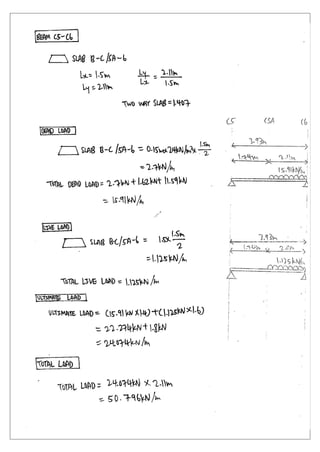 BEAM C5-C6
SLAB B-C/5A-6
Lx = 1.5m Ly/Lx = 2.11m/1.5m
Ly = 2.11m
TWO WAY SLAB = 1.407
DEAD LOAD
C5 C5A C6
SLAB B-C/5A-6 = 0.15m x 24kN/m³ x 1.5m/2
3.93m
2.11m
= 2.7kN/m
15.91kN/m
TOTAL DEAD LOAD = 2.7kN + 1.62kN + 11.59kN
= 15.91kN/m
LIVE LOAD
SLAB BC/5A-6 = 1.5 x 1.5m/2
= 1.125kN/m
1.125kN/m
TOTAL LIVE LOAD = 1.125kN/m
ULTIMATE LOAD
ULTIMATE LOAD = (15.91kN x 1.4) + (1.125kN x 1.6)
= 22.274kN + 1.8kN
= 24.074kN/m
TOTAL LOAD
TOTAL LOAD = 24.074kN x 2.11m
= 50.796kN/m